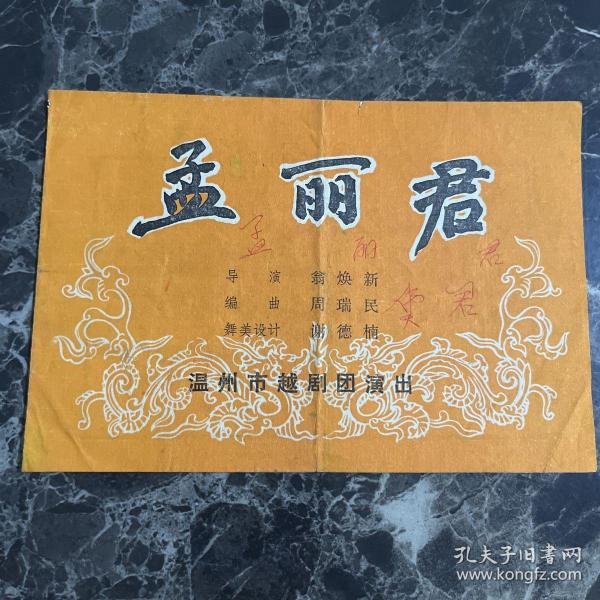 孟丽君
孟 丽 君
导演 翁焕新
编曲 周瑞民
君
舞美设计 谢德楠
温州市越剧团演出
孔夫子旧书网
www.kongfz.com